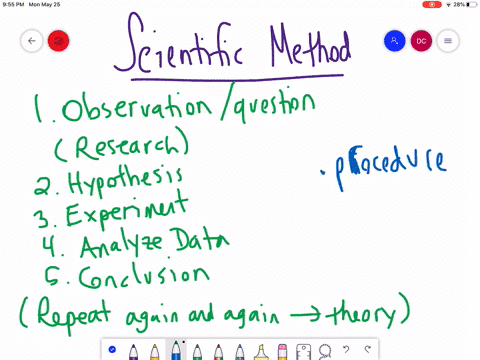 9:55 PM Mon May 25
28%
DC
Scientific Method
1. Observation/question
(Research)
2. Hypothesis
· procedure
3. Experiment
4. Analyze Data
5. Conclusion
(Repeat again and again → theory)